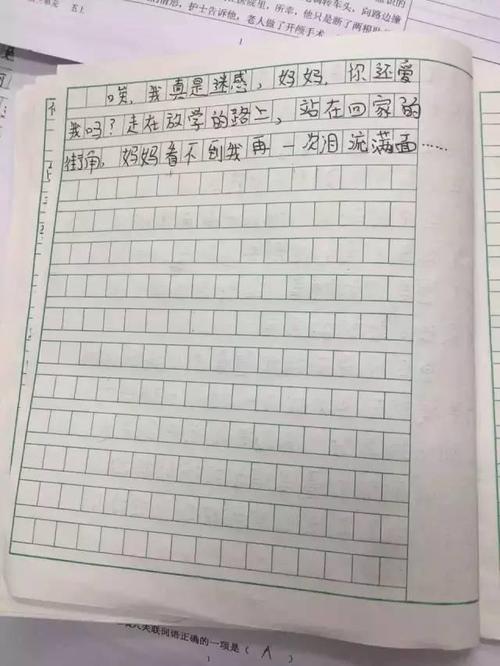 情形，护士告诉他，老人做了开颅手术
医院里，所幸，他只是断了两根肋
转车头，向路边缘
唉，我真是迷惑，妈妈，你还爱
我吗？走在放学的路上，站在回家的
街角，妈妈看不到我再一次泪流满面……
关联词语正确的一项是（ A ）